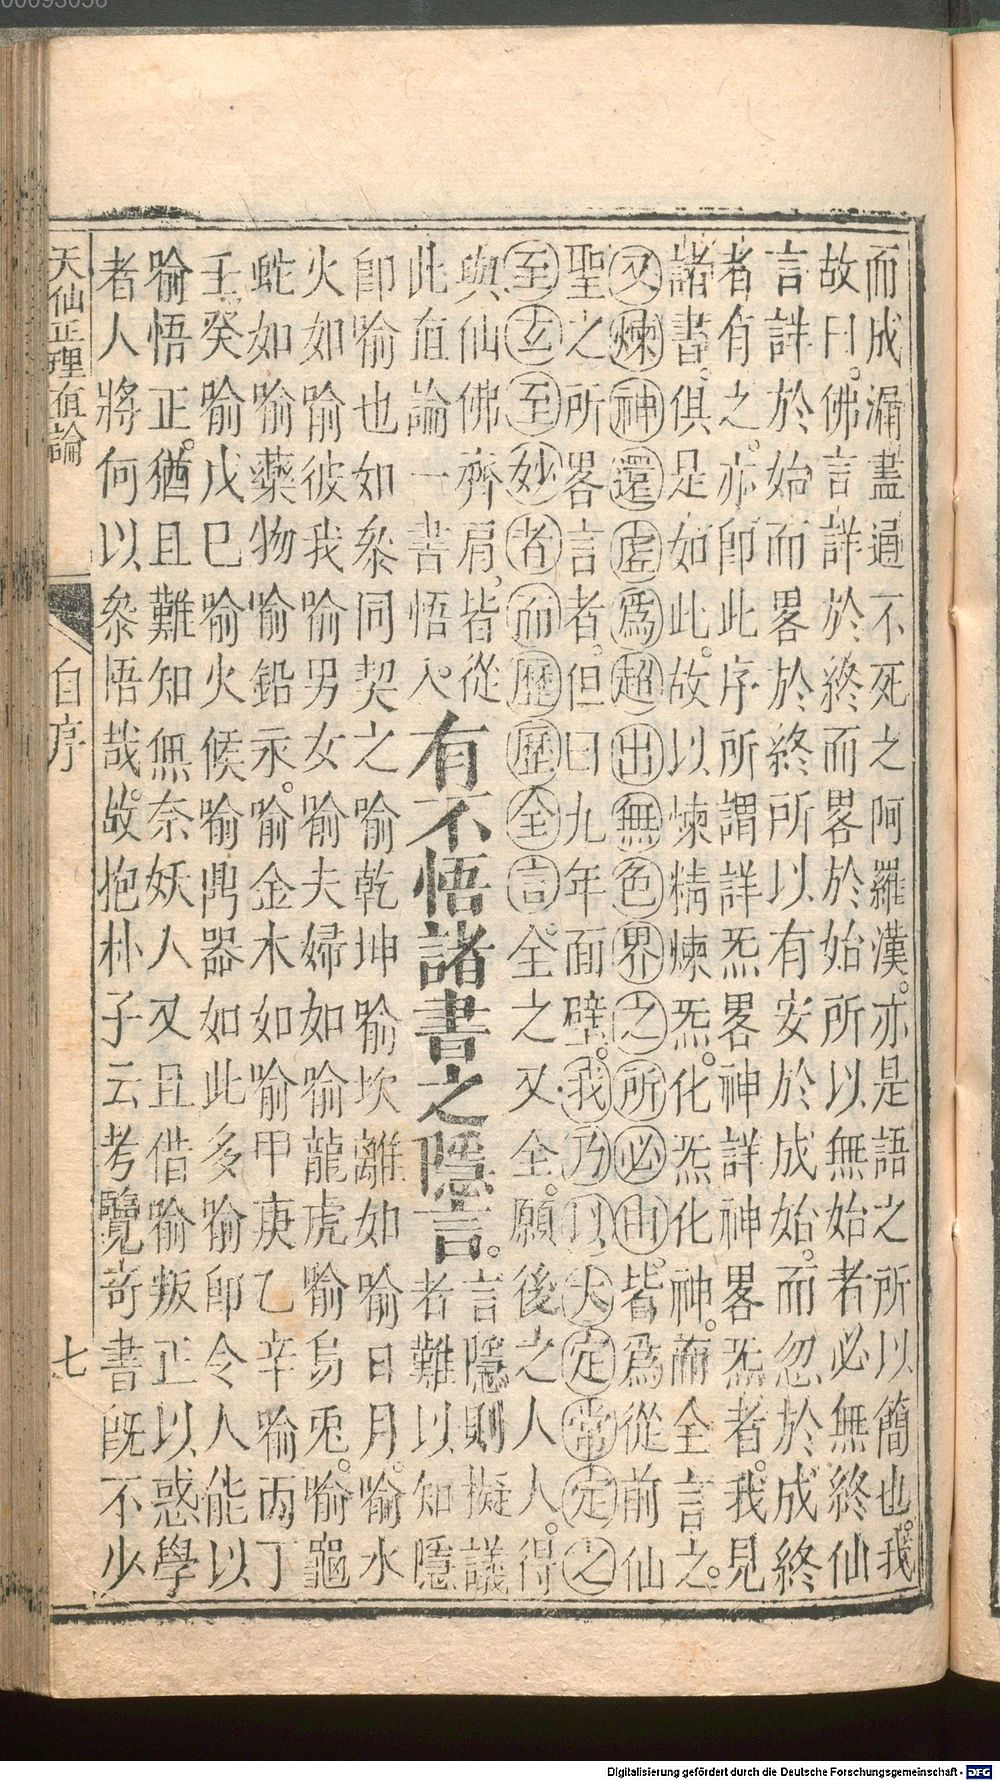 而成漏盡通不死之阿羅漢。亦是語之所以簡也。我
故曰。佛言詳於終而畧於始所以無始者必無終仙
言詳於始而畧於終所以有安於成始。而忽於成終
者有之。亦卽此序所謂詳炁畧神詳神畧炁者。我見
諸書。俱是如此。故以煉精煉炁。化炁化神。而全言之。
又煉神還虛爲超出無色界之所必由。皆爲從前仙
聖之所畧言者。但曰九年面壁。我乃以大定常定之
至玄至妙者而歷歷全言。全之又全。願後之人人。得
與仙佛齊肩。皆從
此直論一書悟入。
有不悟諸書之隱言。
言隱則擬議
者難以知隱
卽喻也如叅同契之喻乾坤喻坎離如喻日月。喻水
火如喻彼我喻男女喻夫婦如喻龍虎喻烏兎。喻龜
蛇如喻藥物喻鉛汞。喻金木如喻甲庚乙辛喻丙丁
壬癸喻戊巳喻火候喻鼎器如此多喻卽令人能以
喻悟正。猶且難知無奈妖人又且借喻叛正以惑學
者人將何以叅悟哉。故抱朴子云考覽奇書旣不少
天仙正理直論
自序
七
00093036
Digitalisierung gefördert durch die Deutsche Forschungsgemeinschaft - DFG